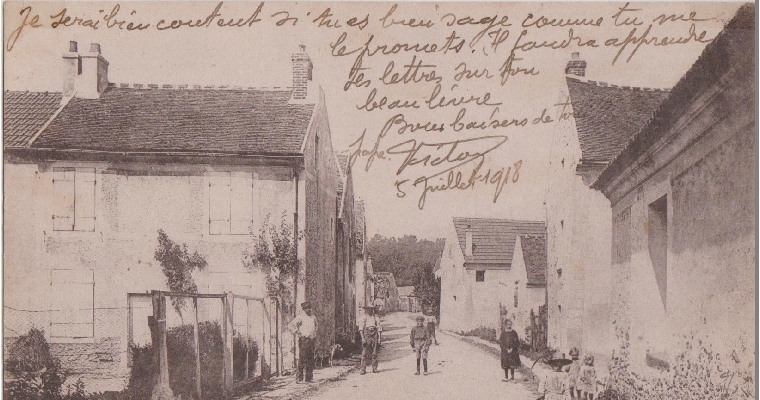 Je serai bien content si tu es bien sage comme tu me
le promets. Il faudra apprendre
tes lettres sur ton
beau livre
Bons baisers de ton
papa. Victor
5 Juillet 1918